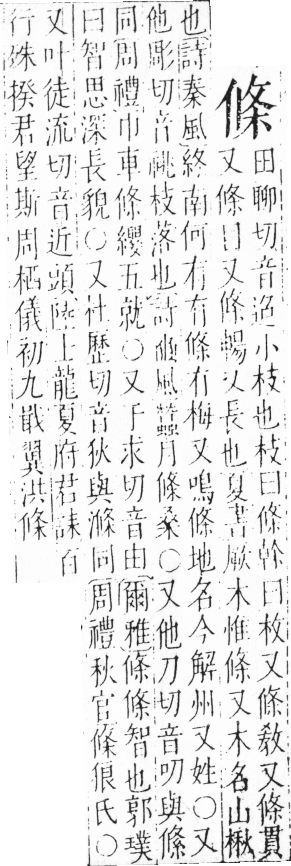 條
田聊切音迢小枝也枝曰條幹曰枚又條敎又條貫
又條目又條暢又長也夏書厥木惟條又木名山楸
也詩秦風終南何有有條有梅又鳴條地名今解州又姓○又
他彫切音祧枝落也詩豳風蠶月條桑○又他刀切音叨與絛
同周禮巾車條纓五就○又于求切音由爾雅條條智也郭璞
曰智思深長貌○又杜歷切音狄與滌同周禮秋官條狼氏○
又叶徒流切音近頭陸士龍夏府君誄百
行殊揆君望斯周栖儀初九戢翼洪條